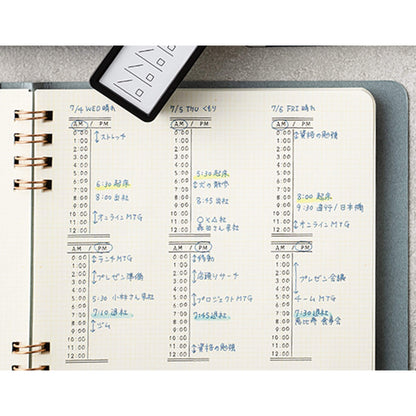 7/4 WED 晴れ
AM / PM
0:00
1:00 ストレッチ
2:00
3:00
4:00
5:00
6:00 6:30 起床
7:00
8:00 8:00 出社
9:00
10:00 オンラインMTG
11:00
12:00
AM / PM
0:00
1:00 ランチMTG
2:00
3:00 プレゼン準備
4:00
5:00 5:30 小林さん来社
6:00
7:00 7:10 退社
8:00
9:00 ジム
10:00
11:00
12:00
7/5 THU くもり
AM / PM
0:00
1:00
2:00
3:00
4:00
5:00 5:30 起床
6:00 犬の散歩
7:00
8:00 8:45 出社
9:00
10:00 〇×△社
11:00 森田さん来社
12:00
AM / PM
0:00 移動
1:00
2:00 店頭リサーチ
3:00
4:00
5:00 プロジェクトMTG
6:00
7:00 7:45 退社
8:00
9:00
10:00
11:00 資格の勉強
12:00
7/6 FRI 晴れ
AM / PM
0:00 資格の勉強
1:00
2:00
3:00
4:00
5:00
6:00
7:00
8:00 8:00 起床
9:00 9:30 直行/日本橋
10:00
11:00 オンラインMTG
12:00
AM / PM
0:00
1:00
2:00
3:00 プレゼン会議
4:00
5:00 チームMTG
6:00
7:00 7:30 退社
8:00 恵比寿 食事会
9:00
10:00
11:00
12:00